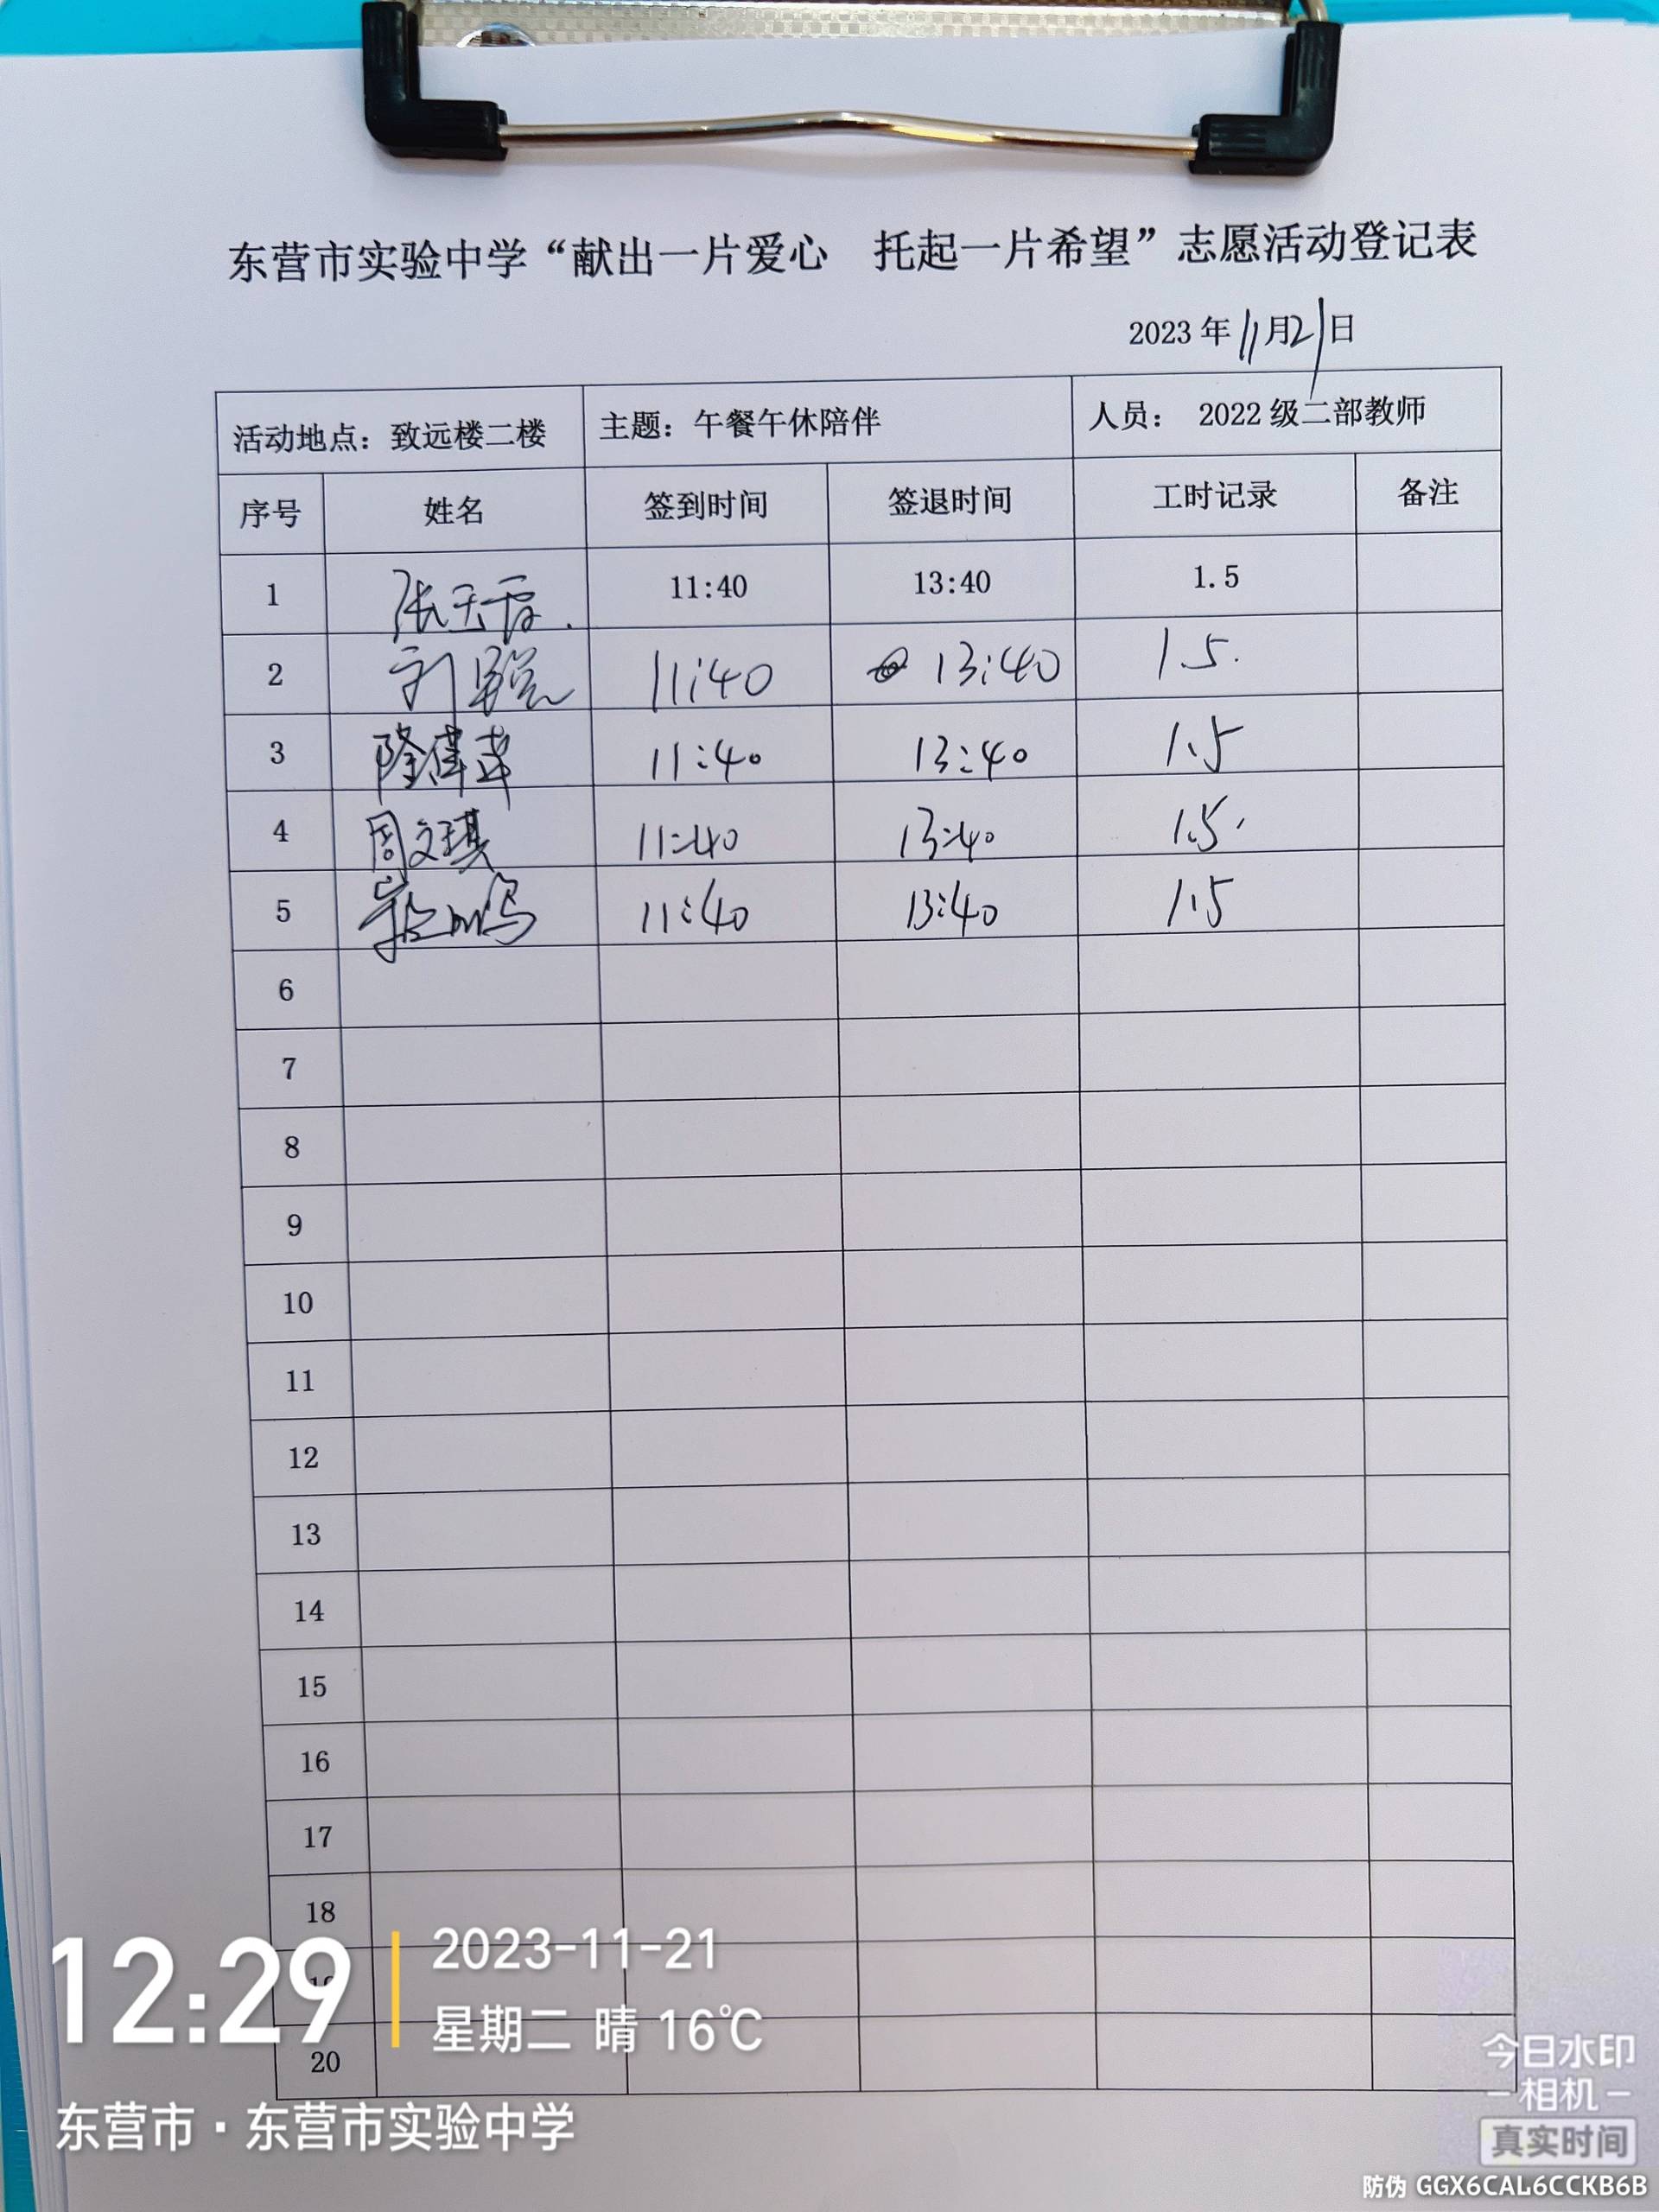 东营市实验中学“献出一片爱心 托起一片希望”志愿活动登记表
2023 年 11 月 21 日
活动地点：致远楼二楼 主题：午餐午休陪伴 人员： 2022 级二部教师
序号 姓名 签到时间 签退时间 工时记录 备注
1 张天 11:40 13:40 1.5
2 刘 11:40 13:40 1.5.
3 隆 11:40 13:40 1.5
4 周文琪 11:40 13:40 1.5.
5 11:40 13:40 1.5
6
7
8
9
10
11
12
13
14
15
16
17
18
19
20
12:29 2023-11-21
星期二 晴 16℃
东营市·东营市实验中学
今日水印
相机
真实时间
防伪 GGX6CAL6CCKB6B